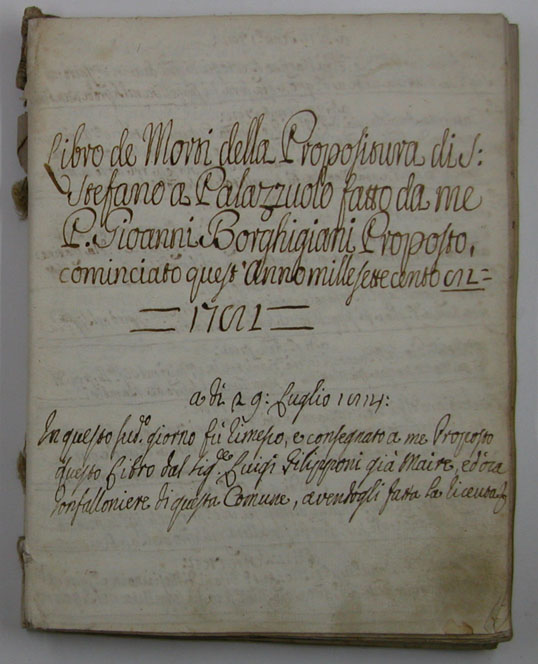 Libro de Morti della Propositura di S:
Stefano a Palazzuolo fatto da me
P. Gioanni Borghigiani Proposto,
cominciato quest'Anno mille sette cento
a di 29: Luglio 1814:
In questo sud.º giorno fù rimesso, e consegnato a me Proposto
questo Libro dal Sig.re Luigi Filipponi già Maire, ed ora
Gonfalloniere di questa Comune, avendogli fatta la ricevuta